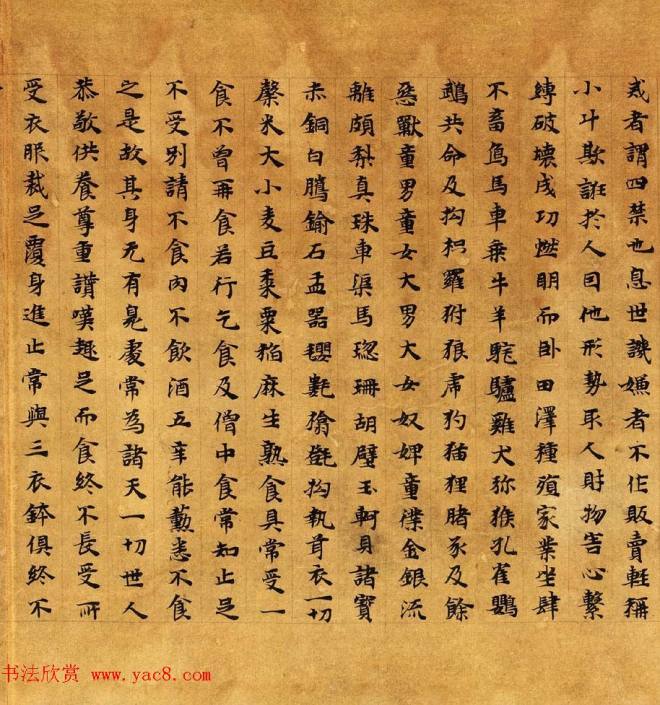 戒者謂四禁也息世譏嫌者不作販賣輕稱
小斗欺誑於人因他形勢取人財物害心繫
縛破壞成功燃明而卧田澤種殖家業坐肆
不畜鳥馬車乗牛羊駝驢雞犬弥猴孔雀鸚
鵡共命及拘枳羅豺狼虎豹猫狸猪豕及餘
惡獸童男童女大男大女奴婢童僕金銀流
離頗梨真珠車渠馬瑙珊胡璧玉軻貝諸寶
赤銅白鑞鍮石盂器氍毹拘執耳衣一切
榖米大小麦豆黍粟稻麻生熟食具常受一
食不曾再食若行乞食及僧中食常知止足
不受別請不食肉不飲酒五辛能勳恚不食
之是故其身无有臭處常為諸天一切世人
恭敬供養尊重讃嘆趣足而食終不長受所
受衣服裁足覆身進止常與三衣鉢俱終不
书法欣赏 www.yac8.com